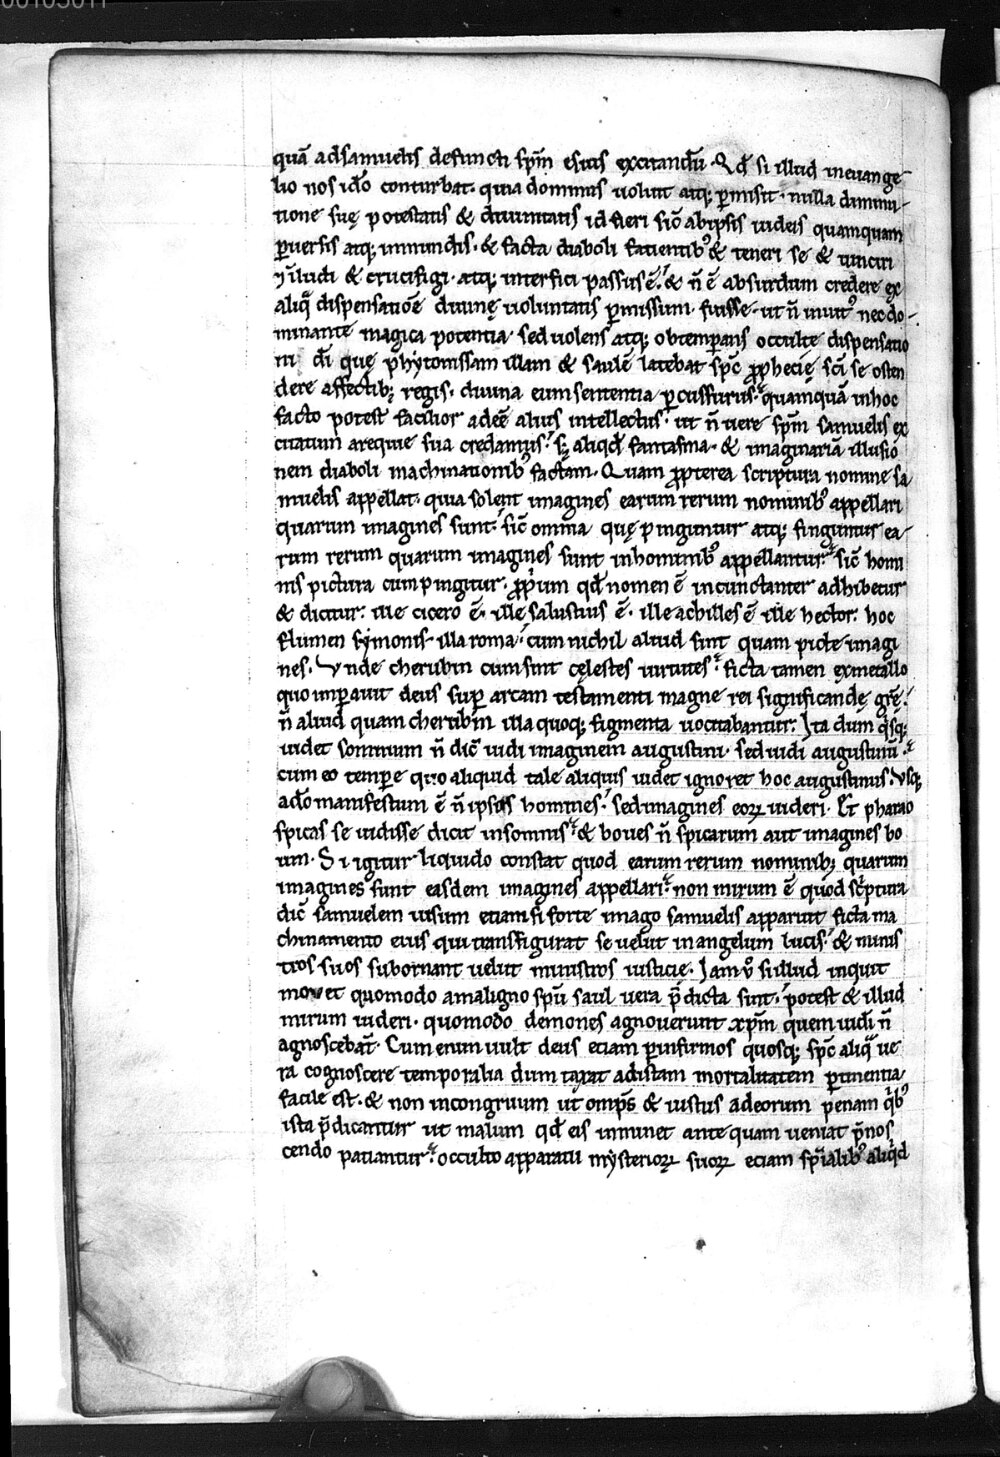 00105011
quā adsamuelis defuncti sp̄m eſuis excitandū. Qd̄ si illud ineuange-
lio nos id̄o conturbat. quia dominus uoluit atq; p̄misit. nulla diminu-
tione suę potestatis & diuinitatis id fieri sic̄ abipsis iudeis quamquam
p̄uersis atq; inmundis. & facta diaboli facientib; & teneri se & uinciri
⁊ īludi & crucifigi. atq; interfici passus ē. & n̄ ē absurdum credere ex
aliq̄ dispensatiōe diuinę uoluntatis p̄missum fuisse. ut n̄ inuit᾽ nec do-
minante magica potentia. sed uolens atq; obtemp̄ans occulte dispensatio
ni dī quę phytonissam illam & saulē latebat sp̄c p̄phecię sc̄i se osten
dere affectib; regis. diuina eum sententia p̄cussurus. quamquā inhoc
facto potest facilior adeē alius intellectus. ut n̄ uere sp̄m samuelis ex
citatum arequie sua credamus. s; aliqd̄ fantasma. & imaginariā illusio
nem diaboli machinationib᾽ factam. Quam p̄pterea scriptura nomine sa
muelis appellat. quia solent imagines earum rerum nominib᾽ appellari
quarum imagines sunt. sic̄ omn̄a quę pinguntur atq; finguntur ea-
rum rerum quarum imagines sunt inhominib᾽ appellantur. sic̄ homi
nis pictura cum pingitur. p̄p̄ium qd̄ nomen ē incunctanter adhibetur
& dicitur. ille cicero ē. ille salustius ē. ille achilles ē ille hector. hoc
flumen symonis. illa roma. cum nichil aliud sint quam picte imagi
nes. Vnde cherubin cum sint cęlestes uirtutes. ficta tamen exmetallo
quo imp̄auit deus sup̄ arcam testamenti magne rei significandę grē.
n̄ aliud quam cherubīn illa quoq; figmenta uocitabantur. Ita dum q̄sq;
uidet somnium n̄ dic̄ uidi imaginem augustini. sed uidi augustinū.
cum eo temp̄e quo aliquid tale aliquis uidet ignoret hoc augustinus. Vsq;
ad̄o manifestum ē n̄ ipsos homines. sed imagines eoꝝ uideri. Et pharao
spicas se uidisse dicit insomnis. & boues n̄ spicarum aut imagines bo
um. Si igitur liquido constat quod earum rerum nominib; quarum
imagines sunt easdem imagines appellari. non mirum ē quod sc̄ptura
dic̄ samuelem uisum etiam si forte imago samuelis apparuit ficta ma
chinamento eius qui transfigurat se uelut in angelum lucis. & minis
tros suos subornant uelut ministros iusticię. Iam ū si illud inquit
mouet quomodo amaligno spū saul uera p̄dicta sunt. potest & illud
mirum uideri. quomodo demones agnouerunt xp̄m quem iudi n̄
agnoscebāt. Cum enim uult deus etiam p̄infirmos quosq; sp̄c aliq̄ ue
ra cognoscere temporalia dum taxat adistam mortalitatem p̄tinentia.
facile est. & non incongruum ut omp̄s & iustus adeorum penam q̄b᾽
ista p̄dicantur ut malum qd̄ eis inminet ante quam ueniat p̄nos
cendo patiantur. occulto apparatu mysterioꝝ suoꝝ etiam sp̄ialib᾽ aliq̄d